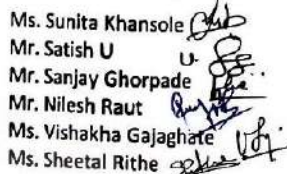 Ms. Sunita Khansole
Mr. Satish U
Mr. Sanjay Ghorpade
Mr. Nilesh Raut
Ms. Vishakha Gajaghate
Ms. Sheetal Rithe